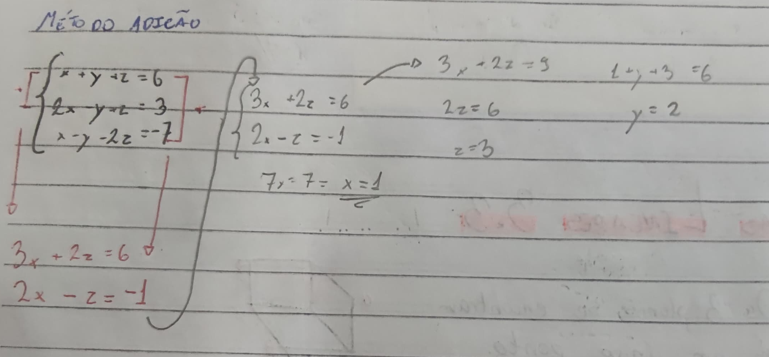 MÉTODO ADIÇÃO
x + y + z = 6
2x - y + z = 3
x - y - 2z = -7
3x + 2z = 6
2x - z = -1
3x + 2z = 6
2x - z = -1
7x = 7 = x = 1
3x + 2z = 9
2z = 6
z = 3
1 + y + 3 = 6
y = 2